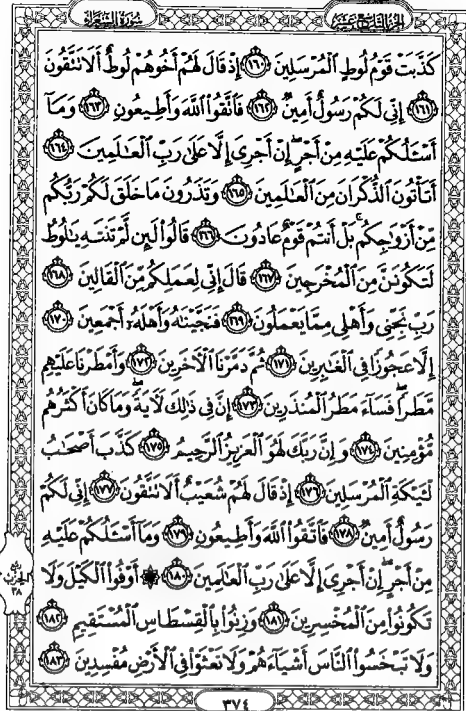 سُورَةُ الشُّعَرَاءِ
الجُزْءُ التَّاسِعَ عَشَرَ
كَذَّبَتْ قَوْمُ لُوطٍ الْمُرْسَلِينَ ١٦٠ إِذْ قَالَ لَهُمْ أَخُوهُمْ لُوطٌ أَلَا تَتَّقُونَ
١٦١ إِنِّي لَكُمْ رَسُولٌ أَمِينٌ ١٦٢ فَاتَّقُوا اللَّهَ وَأَطِيعُونِ ١٦٣ وَمَا
أَسْـَٔلُكُمْ عَلَيْهِ مِنْ أَجْرٍ إِنْ أَجْرِيَ إِلَّا عَلَىٰ رَبِّ الْعَـٰلَمِينَ ١٦٤
أَتَأْتُونَ الذُّكْرَانَ مِنَ الْعَـٰلَمِينَ ١٦٥ وَتَذَرُونَ مَا خَلَقَ لَكُمْ رَبُّكُم
مِّنْ أَزْوَٰجِكُم بَلْ أَنتُمْ قَوْمٌ عَادُونَ ١٦٦ قَالُوا لَئِن لَّمْ تَنتَهِ يَـٰلُوطُ
لَتَكُونَنَّ مِنَ الْمُخْرَجِينَ ١٦٧ قَالَ إِنِّي لِعَمَلِكُم مِّنَ الْقَالِينَ ١٦٨
رَبِّ نَجِّنِي وَأَهْلِي مِمَّا يَعْمَلُونَ ١٦٩ فَنَجَّيْنَـٰهُ وَأَهْلَهُۥ أَجْمَعِينَ ١٧٠
إِلَّا عَجُوزًا فِي الْغَـٰبِرِينَ ١٧١ ثُمَّ دَمَّرْنَا الْـَٔاخَرِينَ ١٧٢ وَأَمْطَرْنَا عَلَيْهِم
مَّطَرًا فَسَآءَ مَطَرُ الْمُنذَرِينَ ١٧٣ إِنَّ فِي ذَٰلِكَ لَـَٔايَةً وَمَا كَانَ أَكْثَرُهُم
مُّؤْمِنِينَ ١٧٤ وَإِنَّ رَبَّكَ لَهُوَ الْعَزِيزُ الرَّحِيمُ ١٧٥ كَذَّبَ أَصْحَـٰبُ
لْـَٔيْكَةِ الْمُرْسَلِينَ ١٧٦ إِذْ قَالَ لَهُمْ شُعَيْبٌ أَلَا تَتَّقُونَ ١٧٧ إِنِّي لَكُمْ
رَسُولٌ أَمِينٌ ١٧٨ فَاتَّقُوا اللَّهَ وَأَطِيعُونِ ١٧٩ وَمَآ أَسْـَٔلُكُمْ عَلَيْهِ
مِنْ أَجْرٍ إِنْ أَجْرِيَ إِلَّا عَلَىٰ رَبِّ الْعَـٰلَمِينَ ١٨٠ ۞ أَوْفُوا الْكَيْلَ وَلَا
تَكُونُوا مِنَ الْمُخْسِرِينَ ١٨١ وَزِنُوا بِالْقِسْطَاسِ الْمُسْتَقِيمِ ١٨٢
وَلَا تَبْخَسُوا النَّاسَ أَشْيَآءَهُمْ وَلَا تَعْثَوْا فِي الْأَرْضِ مُفْسِدِينَ ١٨٣
الحزب
٣٨
٣٧٤